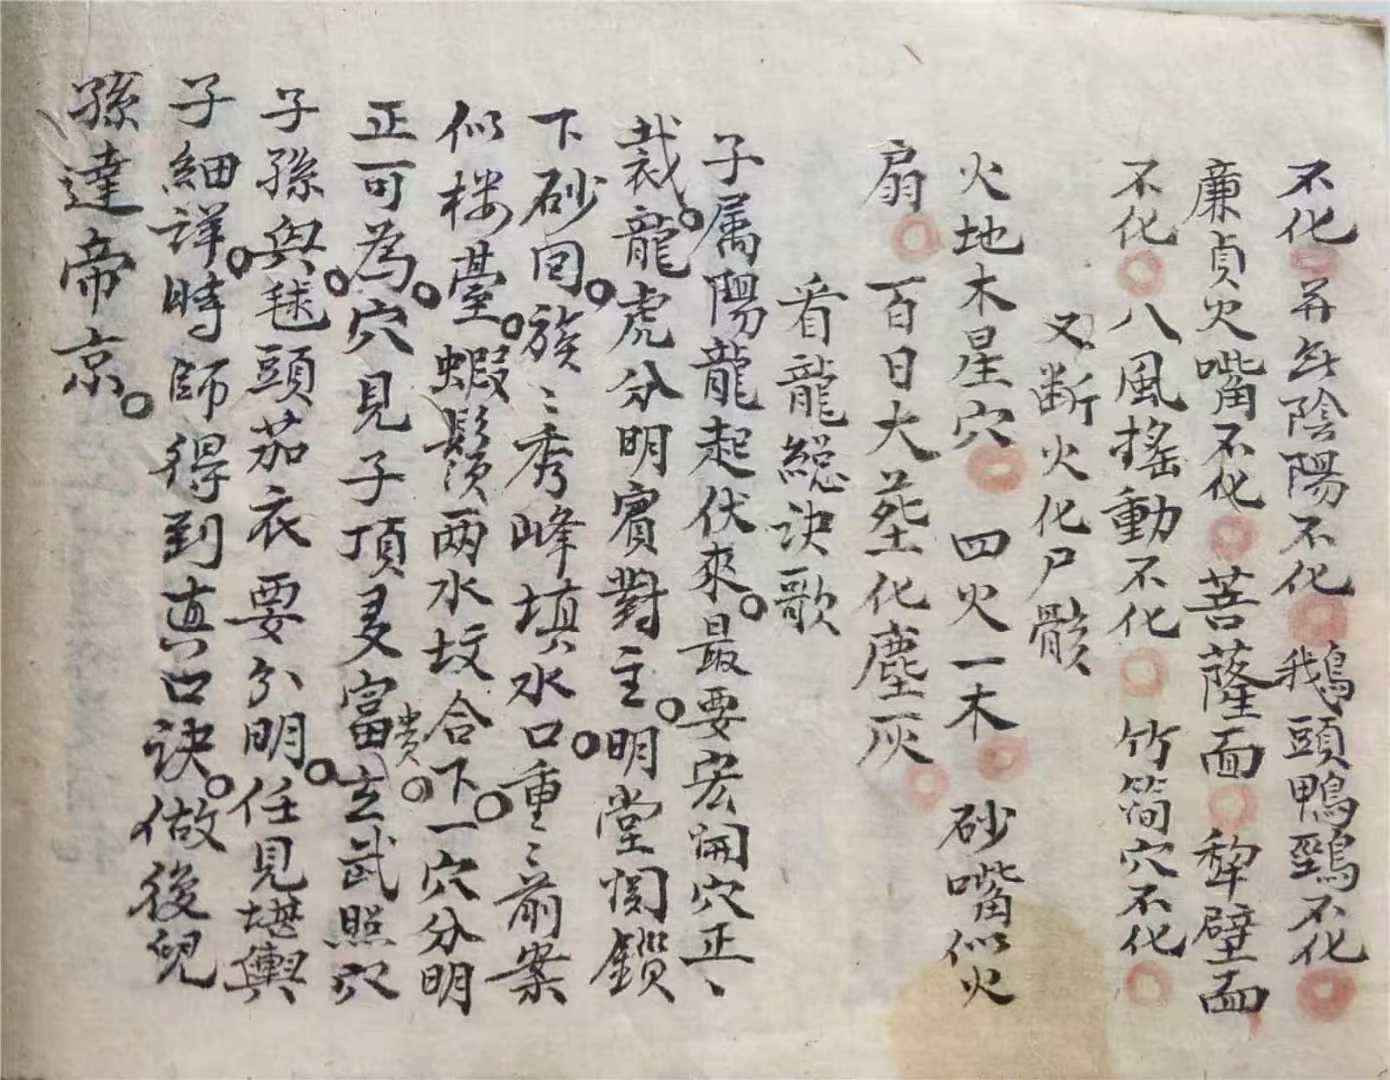 不化。并無陰陽不化。鵝頭鴨鵛不化。
廉貞火嘴不化。菩薩面。犂壁面
不化。八風搖動不化。竹筒穴不化。
又断火化尸骸
火地木星穴。四火一木。砂嘴似火
扇。百日大葬化塵灰。
看龍總诀歌
子属陽龍起伏來。最要宏開穴正〻
裁。龍虎分明賓對主。明堂関鎖
下砂囬。簇〻秀峰填水口。重〻前案
似楼臺。蝦鬚両水坟合下。一穴分明
正可為。穴見子頂多富貴。玄武照穴
子孫興。毬頭茄衣要分明。任見堪輿
子細詳。時師得到真口诀。做後兒
孫達帝京。